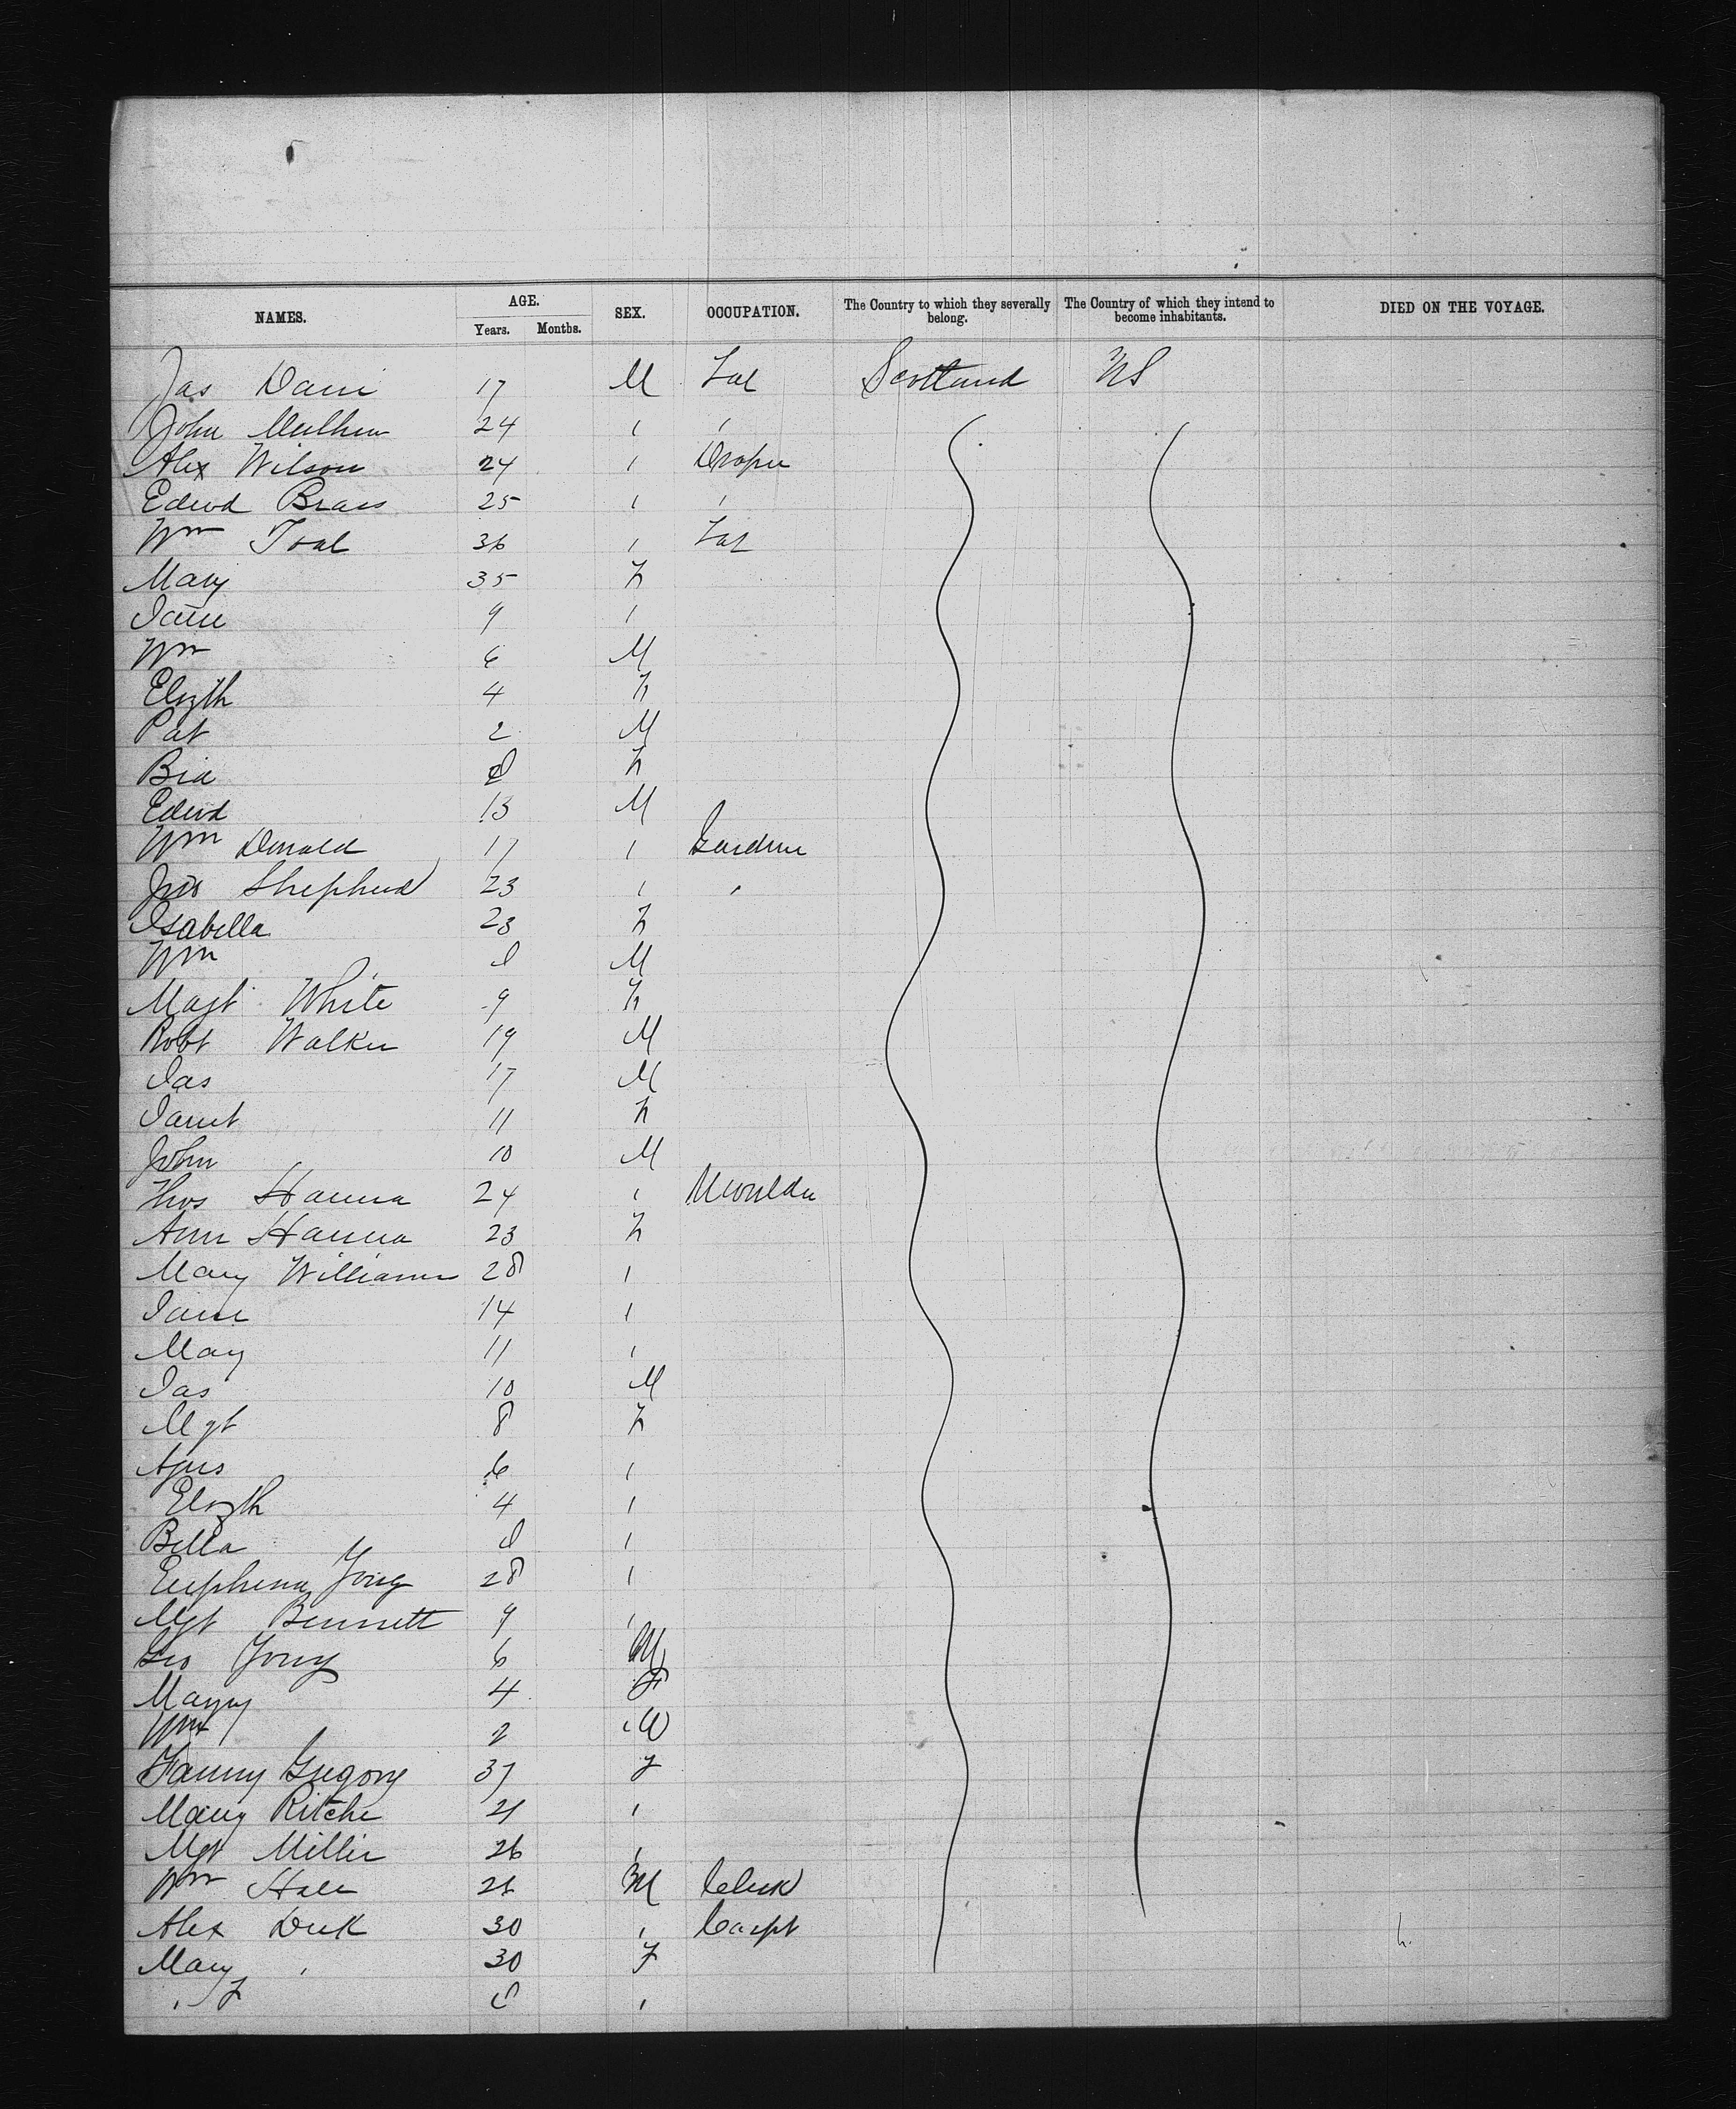 NAMES. AGE. SEX. OCCUPATION. The Country to which they severally belong. The Country of which they intend to become inhabitants. DIED ON THE VOYAGE.
Years. Months.
Jas 17 M Lab Scotland US
John 24 " "
Alex Wilson 24 " Draper
Edwd Brass 25 " "
Wm Toal 36 " Lab
Mary 35 F
Jane 9 "
Wm 6 M
Elizth 4 F
Pat 2 M
F
Edwd 13 M
Wm Donald 17 " Gardner
Jno Shepherd 23 " "
Isabella 23 F
Wm M
Magt White 9 F
Robt Walker 19 M
Jas 17 M
Janet 11 F
John 10 M
Thos Hanna 24 " Moulder
Ann Hanna 23 F
Mary Williams 28 "
Jane 14 "
Mary 11 "
Jas 10 M
Mgt 8 F
Agnes 6 "
Elizth 4 "
Bella "
Euphema Yong 28 "
Mgt Bennett 9 "
Geo Yong 6 M
Maggy 4 F
Wm 2 M
Fanny Gregory 37 F
Mary Ritchie 21 "
Mgt Miller 26 "
Wm M Clerk
Alex 30 " Carpt
Mary " 30 F
" F "